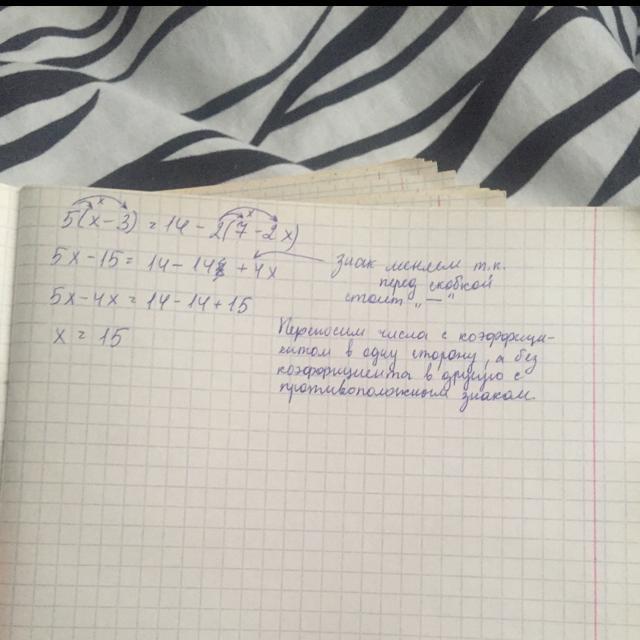 5(x-3) = 14 - 2(7-2x)
5x - 15 = 14 - 14 + 4x
знак меняем т.к.
перед скобкой
стоит „—“
5x - 4x = 14 - 14 + 15
x = 15
Переносим числа с коэффици-
ентом в одну сторону, а без
коэффициента в другую с
противоположным знаком.